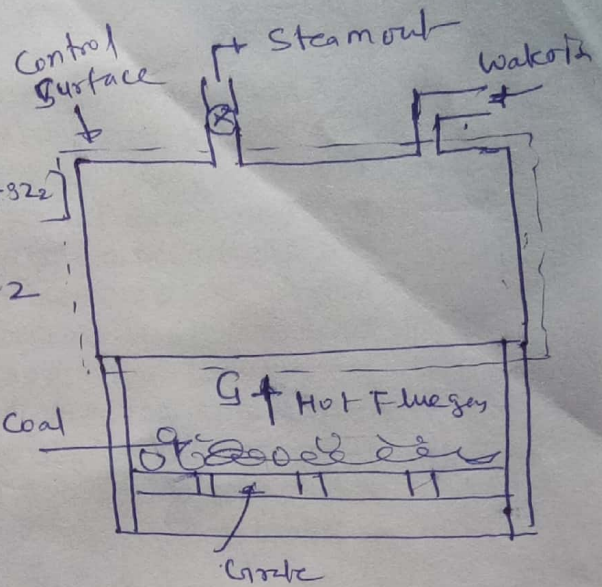 Control
Surface
Steam out
Water in
gz2
2
G
Hot Flue gas
Coal
Grate